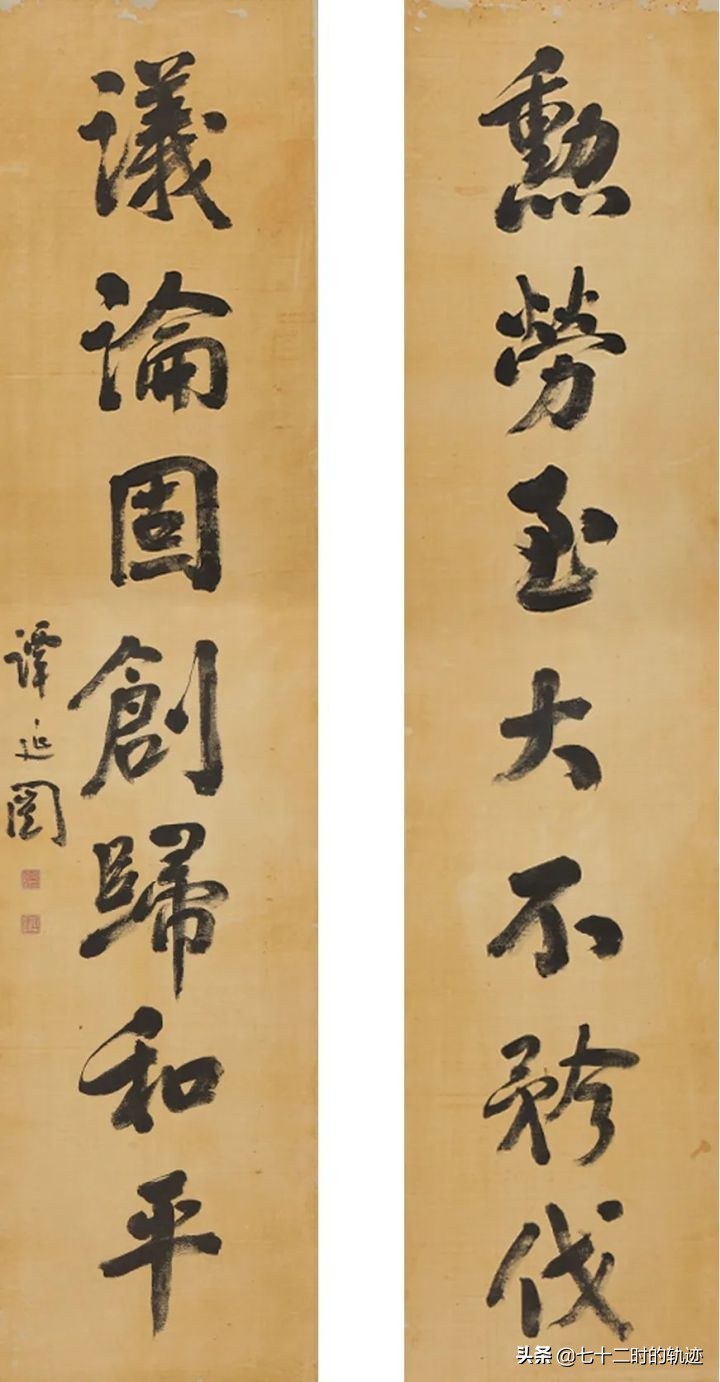 勲勞至大不矜伐
議論固創歸和平
譚延闓
头条 @七十二时的轨迹